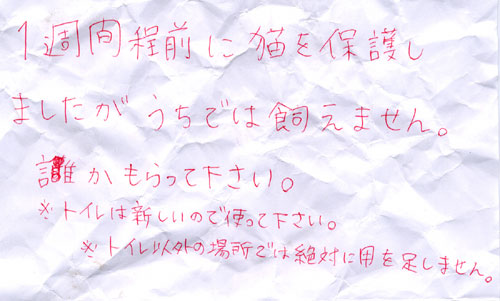 1週間程前に猫を保護し
ましたがうちでは飼えません。
誰かもらって下さい。
※トイレは新しいので使って下さい。
※トイレ以外の場所では絶対に用を足しません。